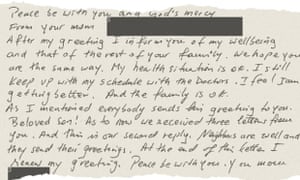 Peace be with you and god's mercy
From your mom
After my greeting I inform you of my wellbeing
and that of the rest of your family. We hope you
are the same way. My health situation is ok. I still
keep up with my schedule with the Doctors. I feel I am
getting better. And the family is ok.
As I mentioned everybody sends this greeting to you.
Beloved son! As to now we received three letters from
you. And this is our second reply. Neighbors are well and
they send their greetings. At the end of this letter I
renew my greeting. Peace be with you. Your mom